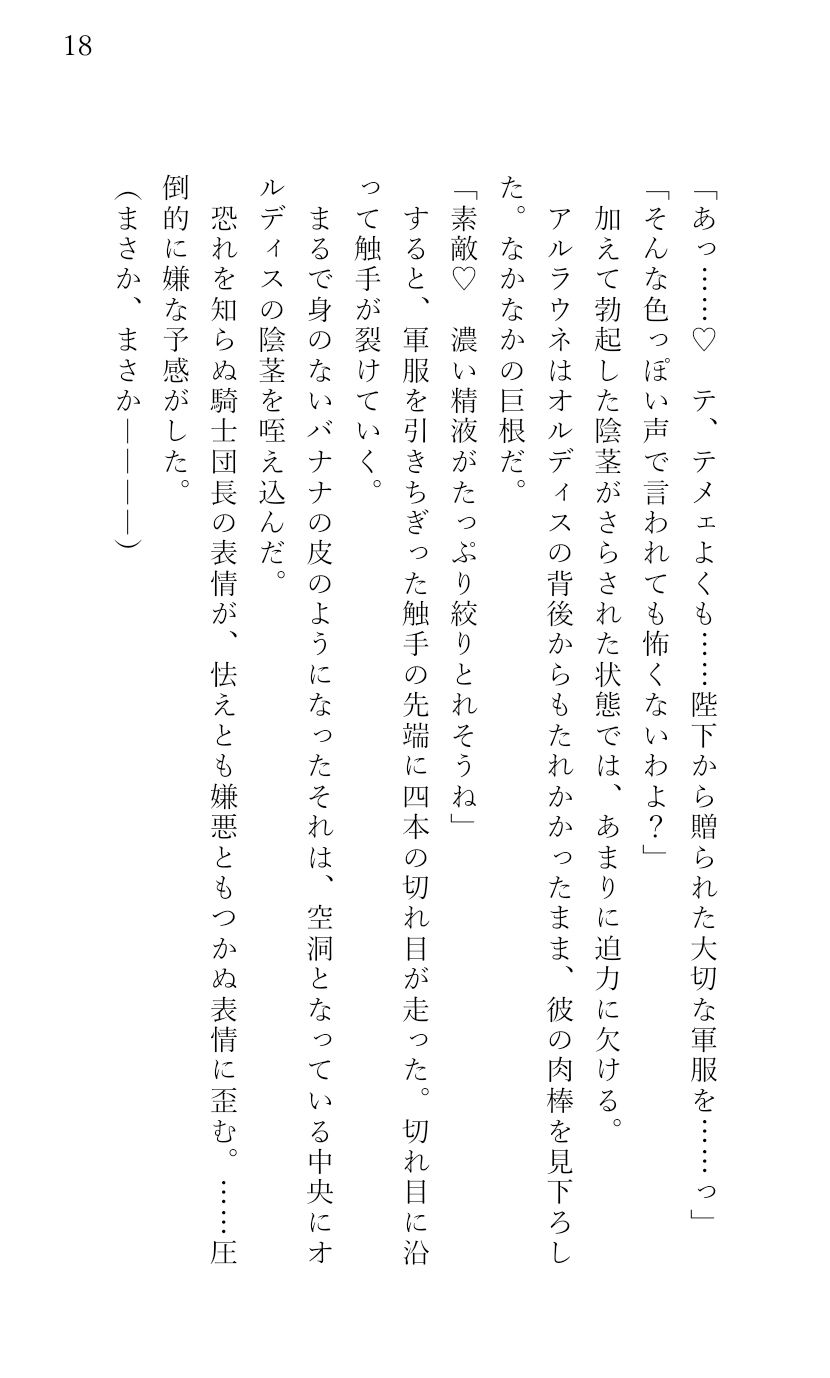 18
「あっ……♡　テ、テメェよくも……陛下から贈られた大切な軍服を……っ」
「そんな色っぽい声で言われても怖くないわよ？」
　加えて勃起した陰茎がさらされた状態では、あまりに迫力に欠ける。
　アルラウネはオルディスの背後からもたれかかったまま、彼の肉棒を見下ろし
た。なかなかの巨根だ。
「素敵♡　濃い精液がたっぷり絞りとれそうね」
　すると、軍服を引きちぎった触手の先端に四本の切れ目が走った。切れ目に沿
って触手が裂けていく。
　まるで身のないバナナの皮のようになったそれは、空洞となっている中央にオ
ルディスの陰茎を咥え込んだ。
　恐れを知らぬ騎士団長の表情が、怯えとも嫌悪ともつかぬ表情に歪む。……圧
倒的に嫌な予感がした。
（まさか、まさか――――）